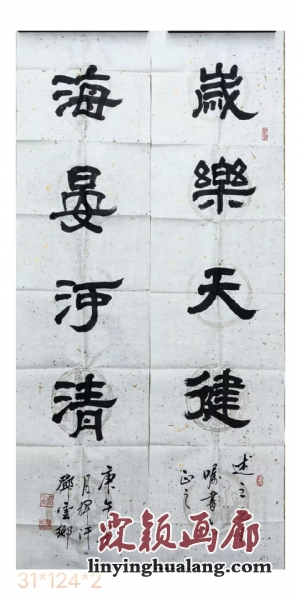 歲樂天健
述之
嘱書
正之
海晏河清
庚午
月揮汗
鄧雲鄉
颖画廊
linyinghualang.com
31*124*2